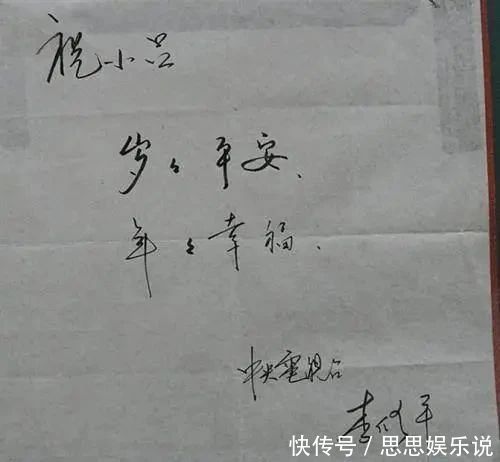 祝小吕
岁々平安、
年々幸福、
中央電视台
李修平
快传号 / 思思娱乐说